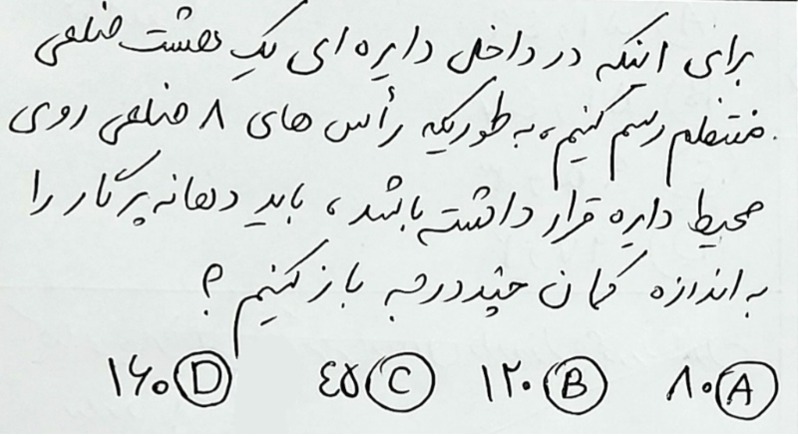 برای اینکه در داخل دایره ای یک هشت ضلعی
منتظم رسم کنیم، به طوریکه رأس های ۸ ضلعی روی
محیط دایره قرار داشته باشد، باید دهانه پرگار را
به اندازه کمان چند درجه باز کنیم؟
A ۸۰ B ۱۲۰ C ٤۵ D ۱۶۰